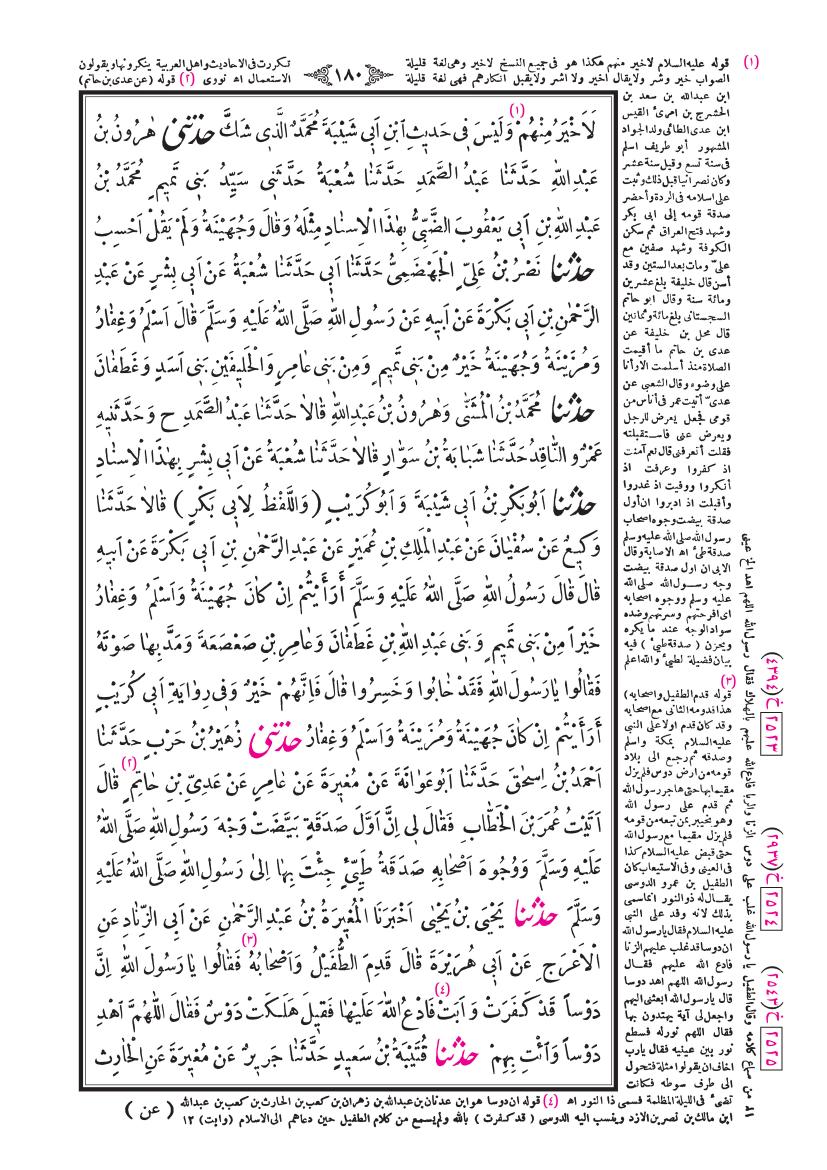 (١) قوله عليه السلام لاخير منهم هكذا هو فى جميع النسخ لاخير وهى لغة قليلة
تكررت فى الاحاديث واهل العربية ينكرونها ويقولون
الصواب خير وشر ولايقال اخير ولا اشر ولايقبل انكارهم فهى لغة قليلة
الاستعمال اه نووى (٢) قوله (عن عدى بن حاتم)
١٨٠
لَاَخْيَرُ مِنْهُمْ (١) وَلَيْسَ فِى حَدِيثِ ابْنِ اَبِى شَيْبَةَ مُحَمَّدٌ الَّذِى شَكَّ حَدَّثَنِى هٰرُونُ بْنُ
عَبْدِاللّٰهِ حَدَّثَنَا عَبْدُ الصَّمَدِ حَدَّثَنَا شُعْبَةُ حَدَّثَنِى سَيِّدُ بَنِى تَمِيمٍ مُحَمَّدُ بْنُ
عَبْدِاللّٰهِ بْنِ اَبِى يَعْقُوبَ الضَّبِّىُّ بِهٰذَا الْاِسْنَادِ مِثْلَهُ وَقَالَ وَجُهَيْنَةُ وَلَمْ يَقُلْ اَحْسِبُ
حَدَّثَنَا نَصْرُ بْنُ عَلِىٍّ الْجَهْضَمِىُّ حَدَّثَنَا اَبِى حَدَّثَنَا شُعْبَةُ عَنْ اَبِى بِشْرٍ عَنْ عَبْدِ
الرَّحْمٰنِ بْنِ اَبِى بَكْرَةَ عَنْ اَبِيهِ عَنْ رَسُولِ اللّٰهِ صَلَّى اللّٰهُ عَلَيْهِ وَسَلَّمَ قَالَ اَسْلَمُ وَغِفَارُ
وَمُزَيْنَةُ وَجُهَيْنَةُ خَيْرٌ مِنْ بَنِى تَمِيمٍ وَمِنْ بَنِى عَامِرٍ وَالْحَلِيفَيْنِ بَنِى اَسَدٍ وَغَطَفَانَ
حَدَّثَنَا مُحَمَّدُ بْنُ الْمُثَنّٰى وَهٰرُونُ بْنُ عَبْدِاللّٰهِ قَالَا حَدَّثَنَا عَبْدُ الصَّمَدِ ح وَحَدَّثَنِيهِ
عَمْرٌو النَّاقِدُ حَدَّثَنَا شَبَابَةُ بْنُ سَوَّارٍ قَالَا حَدَّثَنَا شُعْبَةُ عَنْ اَبِى بِشْرٍ بِهٰذَا الْاِسْنَادِ
حَدَّثَنَا اَبُوبَكْرِ بْنُ اَبِى شَيْبَةَ وَاَبُوكُرَيْبٍ (وَاللَّفْظُ لِاَبِى بَكْرٍ) قَالَا حَدَّثَنَا
وَكِيعٌ عَنْ سُفْيَانَ عَنْ عَبْدِ الْمَلِكِ بْنِ عُمَيْرٍ عَنْ عَبْدِ الرَّحْمٰنِ بْنِ اَبِى بَكْرَةَ عَنْ اَبِيهِ
قَالَ قَالَ رَسُولُ اللّٰهِ صَلَّى اللّٰهُ عَلَيْهِ وَسَلَّمَ اَرَأَيْتُمْ اِنْ كَانَ جُهَيْنَةُ وَاَسْلَمُ وَغِفَارُ
خَيْراً مِنْ بَنِى تَمِيمٍ وَبَنِى عَبْدِ اللّٰهِ بْنِ غَطَفَانَ وَعَامِرِ بْنِ صَعْصَعَةَ وَمَدَّ بِهَا صَوْتَهُ
فَقَالُوا يَارَسُولَ اللّٰهِ فَقَدْ خَابُوا وَخَسِرُوا قَالَ فَاِنَّهُمْ خَيْرٌ وَفِى رِوَايَةِ اَبِى كُرَيْبٍ
اَرَأَيْتُمْ اِنْ كَانَ جُهَيْنَةُ وَمُزَيْنَةُ وَاَسْلَمُ وَغِفَارُ حَدَّثَنِى زُهَيْرُ بْنُ حَرْبٍ حَدَّثَنَا
اَحْمَدُ بْنُ اِسْحٰقَ حَدَّثَنَا اَبُوعَوَانَةَ عَنْ مُغِيرَةَ عَنْ عَامِرٍ عَنْ عَدِىِّ بْنِ حَاتِمٍ (٢) قَالَ
اَتَيْتُ عُمَرَ بْنَ الْخَطَّابِ فَقَالَ لِى اِنَّ اَوَّلَ صَدَقَةٍ بَيَّضَتْ وَجْهَ رَسُولِ اللّٰهِ صَلَّى اللّٰهُ
عَلَيْهِ وَسَلَّمَ وَوُجُوهَ اَصْحَابِهِ صَدَقَةُ طَيِّئٍ جِئْتَ بِهَا اِلٰى رَسُولِ اللّٰهِ صَلَّى اللّٰهُ عَلَيْهِ
وَسَلَّمَ حَدَّثَنَا يَحْيَى بْنُ يَحْيٰى اَخْبَرَنَا الْمُغِيرَةُ بْنُ عَبْدِ الرَّحْمٰنِ عَنْ اَبِى الزِّنَادِ عَنِ
الْاَعْرَجِ عَنْ اَبِى هُرَيْرَةَ قَالَ قَدِمَ الطُّفَيْلُ وَاَصْحَابُهُ (٣) فَقَالُوا يَارَسُولَ اللّٰهِ اِنَّ
دَوْساً قَدْ كَفَرَتْ وَاَبَتْ (٤) فَادْعُ اللّٰهَ عَلَيْهَا فَقِيلَ هَلَكَتْ دَوْسٌ فَقَالَ اللّٰهُمَّ اهْدِ
دَوْساً وَائْتِ بِهِمْ حَدَّثَنَا قُتَيْبَةُ بْنُ سَعِيدٍ حَدَّثَنَا جَرِيرٌ عَنْ مُغِيرَةَ عَنِ الْحَارِثِ
ابن عبدالله بن سعد بن
الحشرج بن امرئ القيس
ابن عدى الطائى ولد الجواد
المشهور أبو طريف اسلم
فى سنة تسع وقيل سنة عشر
وكان نصرانيا قبل ذلك وثبت
على اسلامه فى الردة وأحضر
صدقة قومه إلى ابى بكر
وشهد فتح العراق ثم سكن
الكوفة وشهد صفين مع
علىّ ومات بعد الستين وقد
أسن قال خليفة بلغ عشرين
ومائة سنة وقال ابو حاتم
السجستانى بلغ مائة وثمانين
قال محل بن خليفة عن
عدى بن حاتم ما أقيمت
الصلاة منذ أسلمت الا وأنا
على وضوء وقال الشعبى عن
عدىّ أتيت عمر فى أناس من
قومى فجعل يعرض للرجل
ويعرض عنى فاستقبلته
فقلت أتعرفنى قال نعم آمنت
اذ كفروا وعرفت اذ
أنكروا ووفيت اذ غدروا
وأقبلت اذ ادبروا ان أول
صدقة بيضت وجوه اصحاب
رسول الله صلى الله عليه وسلم
صدقة طئ اه الاصابة وقال
الابى ان اول صدقة بيضت
وجه رسول الله صلى الله
عليه وسلم ووجوه اصحابه
اى افرحتهم وسرتهم وضده
سواد الوجه عند ما يكره
ويحزن (صدقة طيئ) فيه
بيان فضيلة لطيئ والله اعلم
(٣)
قوله قدم الطفيل واصحابه)
هذا قدومه الثانى مع اصحابه
وقد كان قدم اولا على النبى
عليه السلام بمكة واسلم
وصدقه ثم رجع الى بلاد
قومه من ارض دوس فلم يزل
مقيما بها حتى هاجر رسول الله
ثم قدم على رسول الله
وهو بخيبر بمن تبعه من قومه
فلم يزل مقيما مع رسول الله
حتى قبض عليه السلام كذا
فى العينى وفى الاستيعاب كان
الطفيل بن عمرو الدوسى
يقال له ذو النور انما سمى
بذلك لانه وفد على النبى
عليه السلام فقال يارسول الله
ان دوسا قد غلب عليهم الزنا
فادع الله عليهم فقال
رسول الله اللهم اهد دوسا
قال يارسول الله ابعثنى اليهم
واجعل لى آية يهتدون بها
فقال اللهم نور له فسطع
نور بين عينيه فقال يارب
اخاف ان يقولوا مثلة فتحول
الى طرف سوطه فكانت
تضئ فى الليلة المظلمة فسمى ذا النور اه (٤) قوله ان دوسا هو ابن عدنان بن عبدالله بن زهران بن كعب بن الحارث بن كعب بن عبدالله
ابن مالك بن نصر بن الازد وينسب اليه الدوسى (قد كفرت) بالله ولم يسمع من كلام الطفيل حين دعاهم الى الاسلام (وابت) ١٢
(عن)
الا من سماع كلامه وقال الطفيل يا رسول الله غلب على دوس الزنا والربا فادع الله عليهم بالهلاك فقال رسول الله اللهم اهد الخ عينى
٢٥٢٣ خ (٤٣٩٤)
٢٥٢٤ خ (٢٩٣٧)
٢٥٢٥ خ (٢٥٤٣)